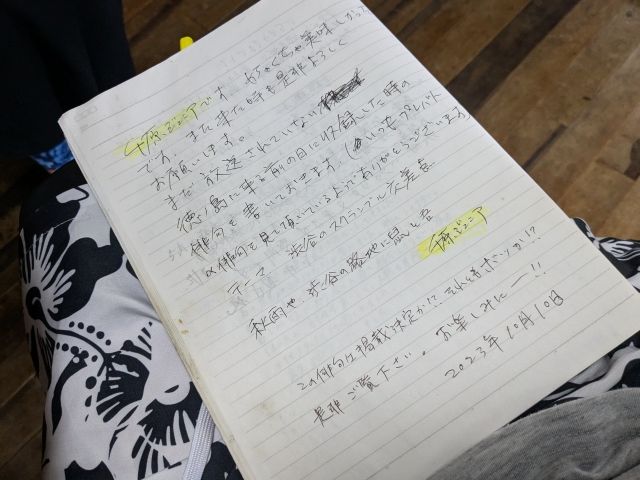 千原ジュニアです。めちゃくちゃ美味しかった
です。また来た時も是非よろしく
お願いします。
まだ放送されていない
徳島に来る前の日に収録した時の
俳句を書いておきます。(いつもプレバト
の俳句を見て頂いているようでありがとうございます)
テーマ 渋谷のスクランブル交差点
秋雨や 渋谷の路地に鼠と吾
千原ジュニア
この俳句は掲載決定か!?それともボツか!?
是非ご覧下さい。お楽しみにー!!
2023年10月10日